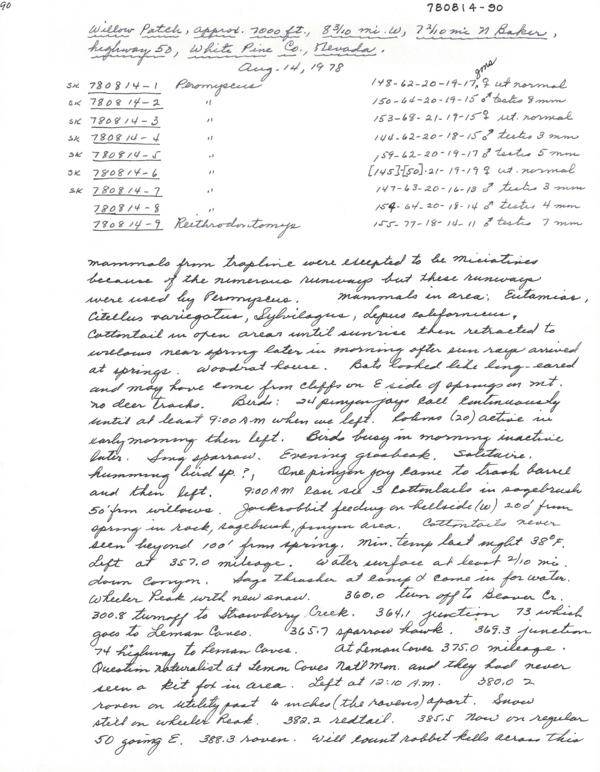 90
780814-90
Willow Patch, approx. 7000 ft., 8 3/10 mi. W, 7 2/10 mi N Baker,
highway 50, White Pine Co., Nevada.
Aug. 14, 1978
gms
SK 780814-1 Peromyscus 148-62-20-19-17, ♀ ut normal
SK 780814-2 " 150-64-20-19-15 ♂ testis 8 mm
SK 780814-3 " 153-68-21-19-15 ♀ ut. normal
SK 780814-4 " 144-62-20-18-15 ♂ testis 3 mm
SK 780814-5 " 159-62-20-19-17 ♂ testis 5 mm
SK 780814-6 " [145]-[50]-21-19-19 ♀ ut. normal
SK 780814-7 " 147-63-20-16-13 ♂ testis 3 mm
780814-8 " 154-64-20-18-14 ♂ testis 4 mm
780814-9 Reithrodontomys 155-77-18-14-11 ♂ testis 7 mm
mammals from trapline were excepted to be Miciotines
because of the numerous runways but these runways
were used by Peromyscus. Mammals in area: Eutamias,
Citellus variegatus, Sylvilagus, Lepus californicus,
Cottontail in open areas until sunrise then retracted to
willows near spring later in morning after sun rays arrived
at springs. Woodrat house. Bats looked like long-eared
and may have come from cliffs on E side of springs on mt.
no deer tracks. Birds: 24 pinyon jays call continuously
until at least 9:00 AM when we left. Robins (20) active in
early morning then left. Birds busy in morning inactive
later. Song sparrow. Evening grosbeak. Solitaire.
humming bird sp.?, One pinyon jay came to trash barrel
and then left. 9:00 AM can see 3 cottontails in sagebrush
50' frm willows. Jackrabbit feeding on hillside (W) 200' from
spring in rock, sagebrush, pinyon area. Cottontails never
seen beyond 100' from spring. Min. temp last night 38°F.
Left at 357.0 mileage. Water surface at least 2/10 mi.
down Canyon. Sage thrasher at camp & came in for water.
Wheeler Peak with new snow. 360.0 turn off to Beaver Cr.
300.8 turnoff to Strawberry Creek. 364.1 junction 73 which
goes to Leman Caves. 365.7 sparrow hawk. 369.3 junction
74 highway to Leman Caves. At Leman Caves 375.0 mileage.
Question naturalist at Leman Caves Natl Mon. and they had never
seen a Kit fox in area. Left at 12:10 A.M. 380.0 2
raven on utility post 6 inches (the ravens) apart. Snow
still on Wheeler Peak. 382.2 redtail. 385.5 Now on regular
50 going E. 388.3 raven. Will count rabbit kills across this